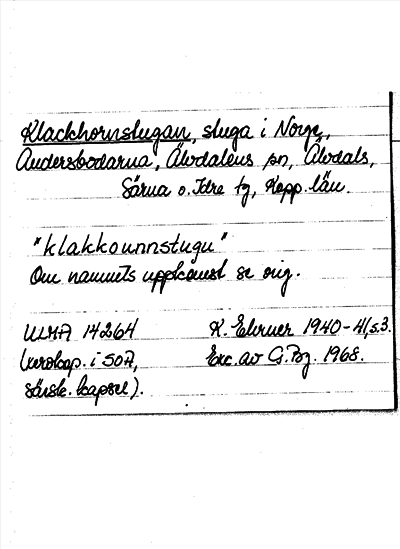 Klackhornstugan, stuga i Norge,
Andersbodarna, Älvdalens sn, Älvdals,
Särna o. Idre tg, Kopp. län.
"klakkounnstugu"
Om namnets uppkomst se orig.
ULMA 14264 K. Ehrner 1940-41, s.3.
i SOA, Exc. av G. Bg. 1968.
särsk. kapsel).